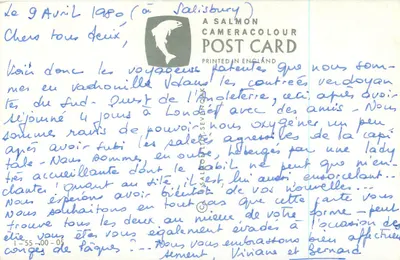 Le 9 Avril 1980, (à Salisbury)
Chers tous deux,
A SALMON
CAMERACOLOUR
POST CARD
PRINTED IN ENGLAND
Voici donc les voyageurs patentés que nous som-
mes en vadrouille dans les contrées verdoyan
tes du Sud-Ouest de l'Angleterre, ceci après avoir
séjourné 4 jours à Londres avec des amis - Nous
sommes ravis de pouvoir nous oxygéner un peu
après avoir subi les saletés agréables de la capi
tale - Nous sommes en outre hébergés par une lady
très accueillante dont le mobil ne peut que m'en-
chanter! quant au site il est lui aussi ensorcelant...
Nous espérons avoir bientôt de vos nouvelles...
Nous souhaitons en tout cas que cette carte vous
trouve tous les deux au mieux de votre forme - peut
être vous êtes vous également évadés à l'occasion des
congés de Pâques?... Nous vous embrassons bien affectueu
sement, Viviane et Bernard
1-55-00-05